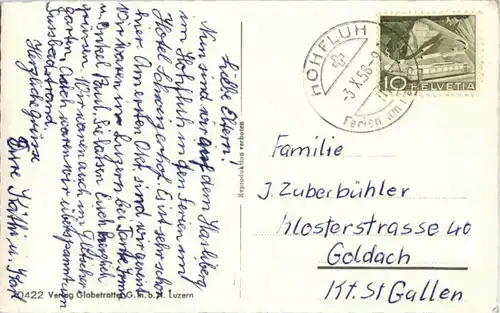 Liebe Eltern!
Nun sind wir auf dem Hasliberg
im Hohfluh in den Ferien im
Hotel Schweizerhof. Es ist sehr schön
hier. Am ersten Okt. sind wir
Wir waren in Luzern bei Tante Irma
u. Onkel Paul. Sie lassen Euch herzlich
grüssen. Wir waren auch im Gletscher-
garten. Auch waren wir
Herzliche Grüsse
Eure Käthi u.
Reproduktion verboten
HOHFLUH
-3.X.58-9
Ferien am
10 HELVETIA
Familie
J. Zuberbühler
Klosterstrasse 40
Goldach
Kt. St Gallen
20422 Verlag Globetrotter G.m.b.H. Luzern